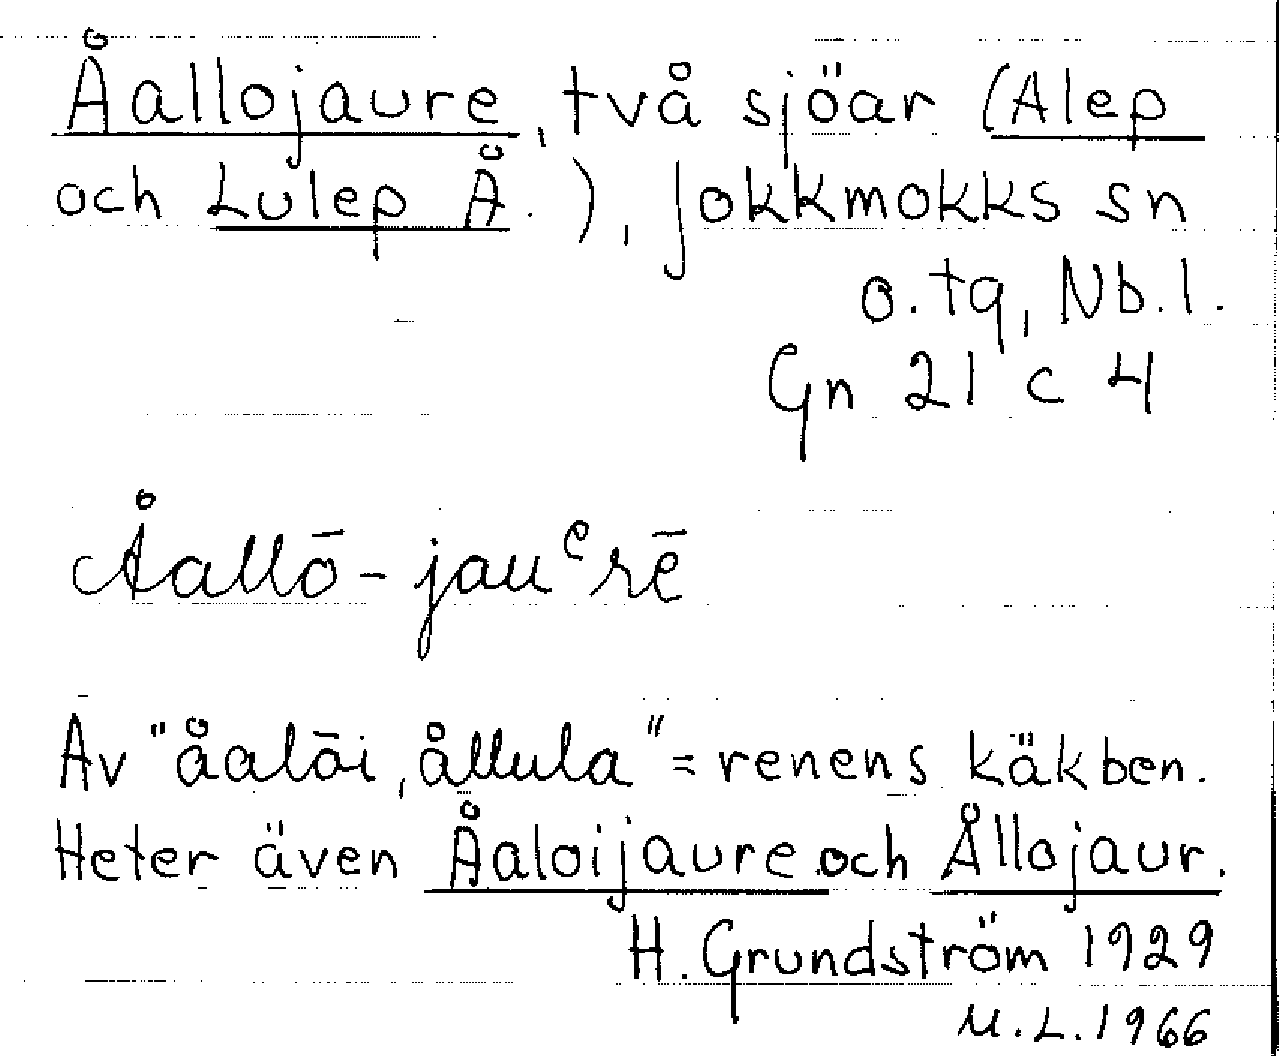 Åallojaure, två sjöar (Alep
och Lulep Å.), Jokkmokks sn
o. tg, Nb. l.
Gn 21 c 4
Åallō-jauᵉrē
Av "åalōi, ållula" = renens käkben.
Heter även Åaloijaure och Ållojaur.
H. Grundström 1929
M.L. 1966